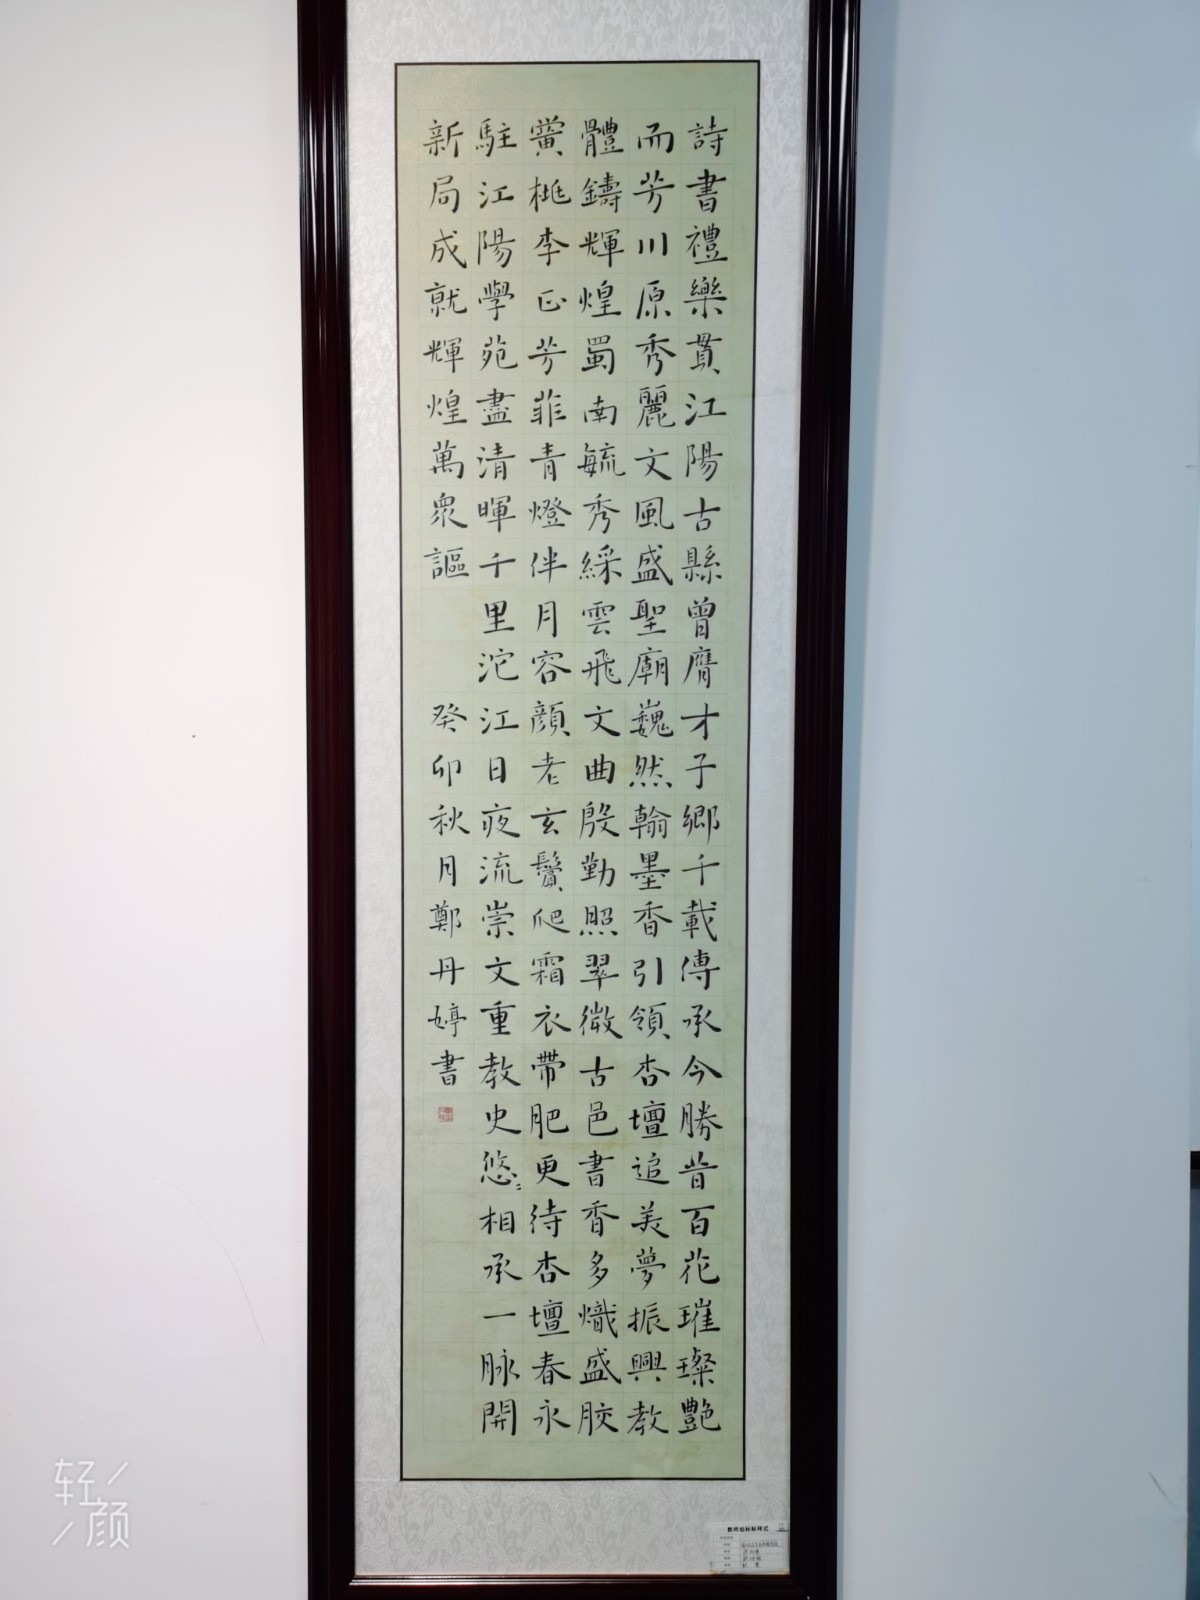 詩書禮樂貫江陽古縣曾膺才子鄉千載傳承今勝昔百花璀璨艷
而芳川原秀麗文風盛聖廟巍然翰墨香引領杏壇追美夢振興教
體鑄輝煌蜀南毓秀綵雲飛文曲殷勤照翠微古邑書香多熾盛胶
黉桃李正芳菲青燈伴月容顏老玄鬢爬霜衣帶肥更待杏壇春永
駐江陽學苑盡清暉千里沱江日夜流崇文重教史悠〻相承一脉開
新局成就輝煌萬眾謳 癸卯秋月鄭丹婷書
轻颜